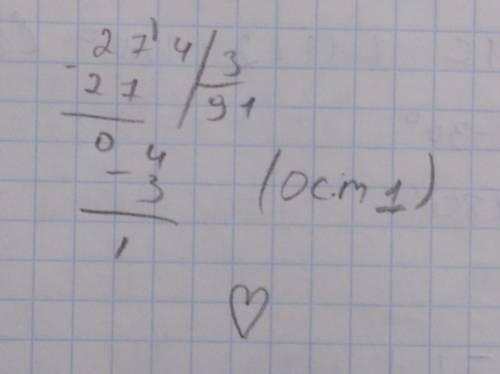 27'4/3
- 27 /91
04
- 3 (Ост 1)
1